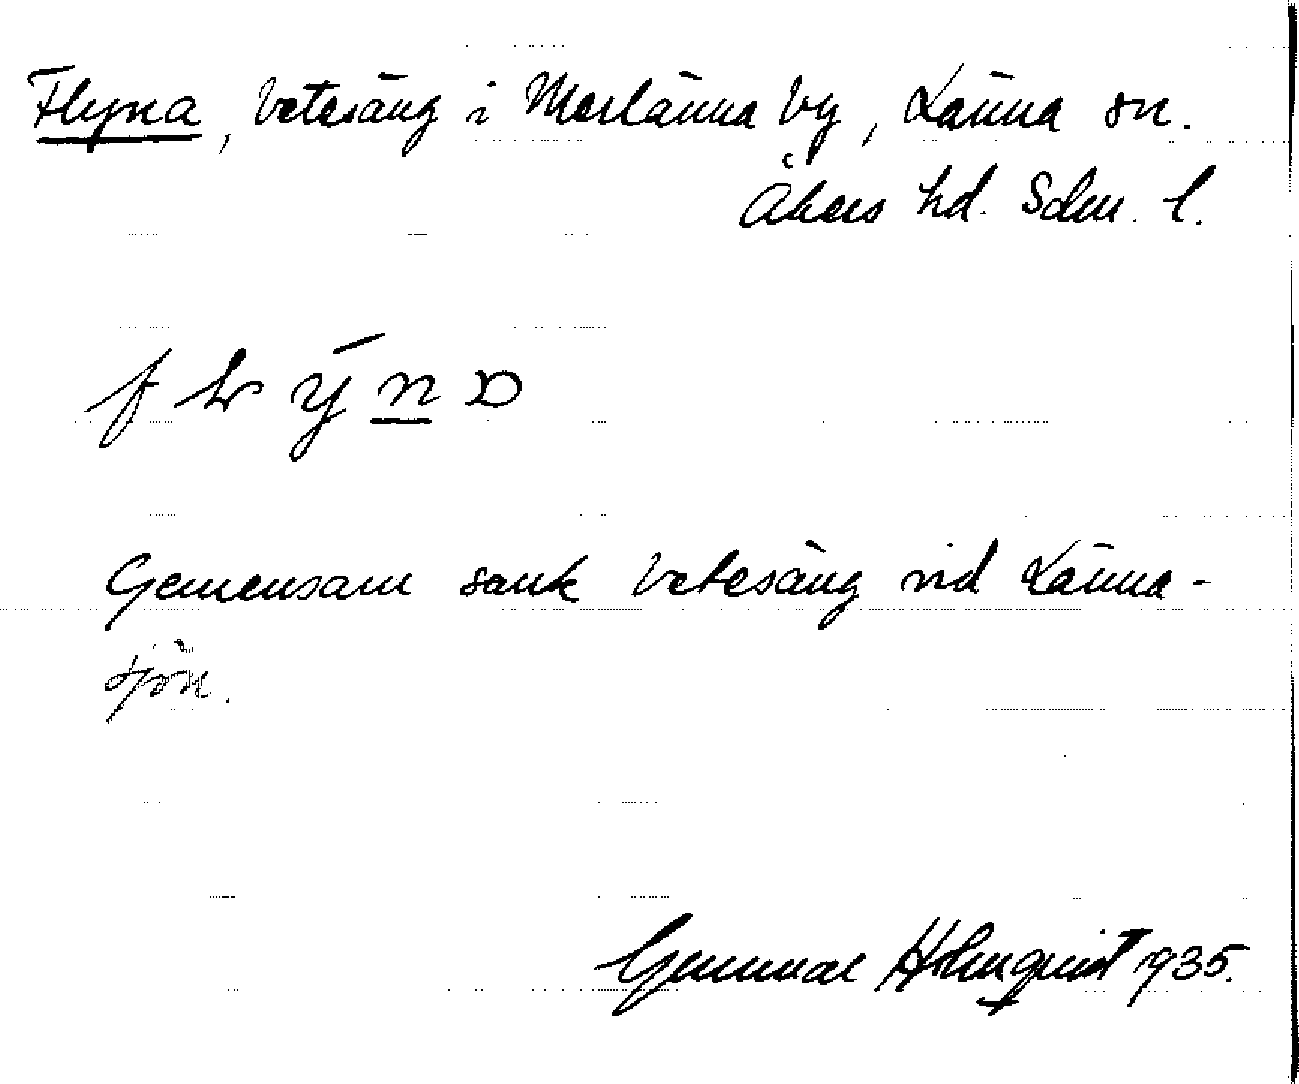 Flyna, betesäng i Merlänna by, Länna sn.
Åkers hd. Sdm. l.
Gemensam sank betesäng vid Länna-
sjön.
Gunnar Holmqvist 1935.